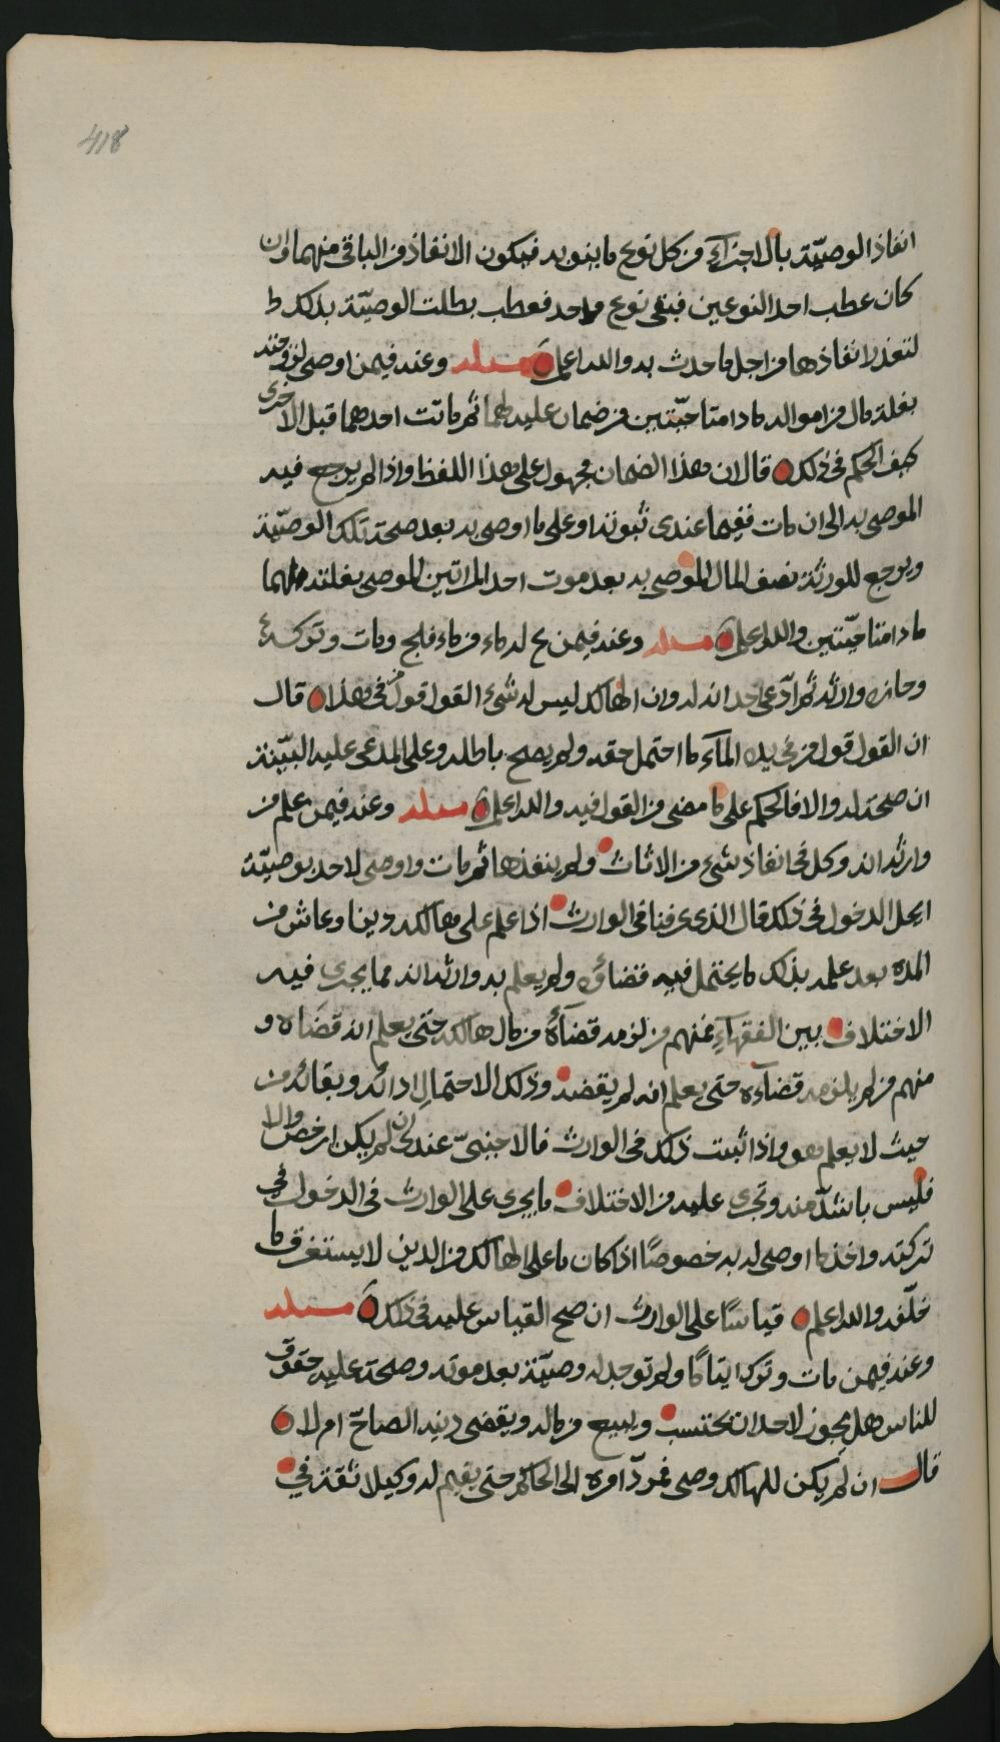 418
انفاذ الوصيّة بالاجزاء من كل نوع ما ينوبه فيكون الانفاذ من الباقي منهما وان
كان عطب احد النوعين فبقى نوع واحد فعطب بطلت الوصيّة بذلك
لتعذر انفاذها من اجل ما حدث به والله اعلم مسئلة وعنه فيمن اوصى لزوجته
بغلة مال من امواله ما دامتا حيّتين من ضمان عليه لهما ثم ماتت احدهما قبل الاخرى
كيف الحكم في ذلك قال ان هذا الضمان مجهول على هذا اللفظ واذا لم يرجع فيه
الموصي به الى ان مات ففيما عندي ثبوته او على ما اوصى به بعد صحة تلك الوصيّة
ويرجع للورثة نصف المال الموصى به بعد موت احد المراتين الموصى بغلته لهما
ما دامتا حيّتين والله اعلم مسئلة وعنه فيمن له ماء من ماء فلج ومات وتركه
وحازه وارثه ثم ادّعى احد انه له وان الهالك ليس له شيء القول قول من في هذا قال
ان القول قول من في يده المآء ما احتمل حقه ولم يصح باطله وعلى المدعى عليه البيّنة
ان صحة له والا فالحكم على ما مضى من القول فيه والله اعلم مسئلة وعنه فيمن علم من
وارثه انه وكل في انفاذ شيء من الاثاث ولم ينفذها ثم مات واوصى لاحد بوصيّة
ايحل الدخول في ذلك قال الذي عرفنا في الوارث اذا علم على هالكه دينا وعاش من
المدة بعد علمه بذلك ما يحتمل فيه قضاؤه ولم يعلم به وارثه انه مما يجري فيه
الاختلاف بين الفقهاء فمنهم من لزومه قضآءه من مال هالكه حتى يعلم انه قضاه و
منهم من لم يلزمه قضآءه حتى يعلم انه لم يقضه وذلك الاحتمال ادائه وبقائه من
حيث لا يعلم هو واذا ثبت ذلك في الوارث فالاجنبيّ عندي ان لم يكن ارخص والا
فليس باشدّ منه وتجري عليه من الاختلاف ما يجري على الوارث في الدخول في
تركته واخذ ما اوصى له به خصوصًا اذا كان ما على الهالك من الدين لا يستغرق ما
خلّفه والله اعلم قياسًا على الوارث ان صح القياس عليه في ذلك مسئلة
وعنه فيمن مات وترك ايتامًا ولم توجد له وصيّة بعد موته وصحة عليه حقوق
للناس هل يجوز لاحد ان يحتسب ويبيع من ماله ويقضى دينه الصاحّ ام لا
قال ان لم يكن للهالك وصي فمردّ امره الى الحاكم حتى يقيم له وكيلا ثقة في